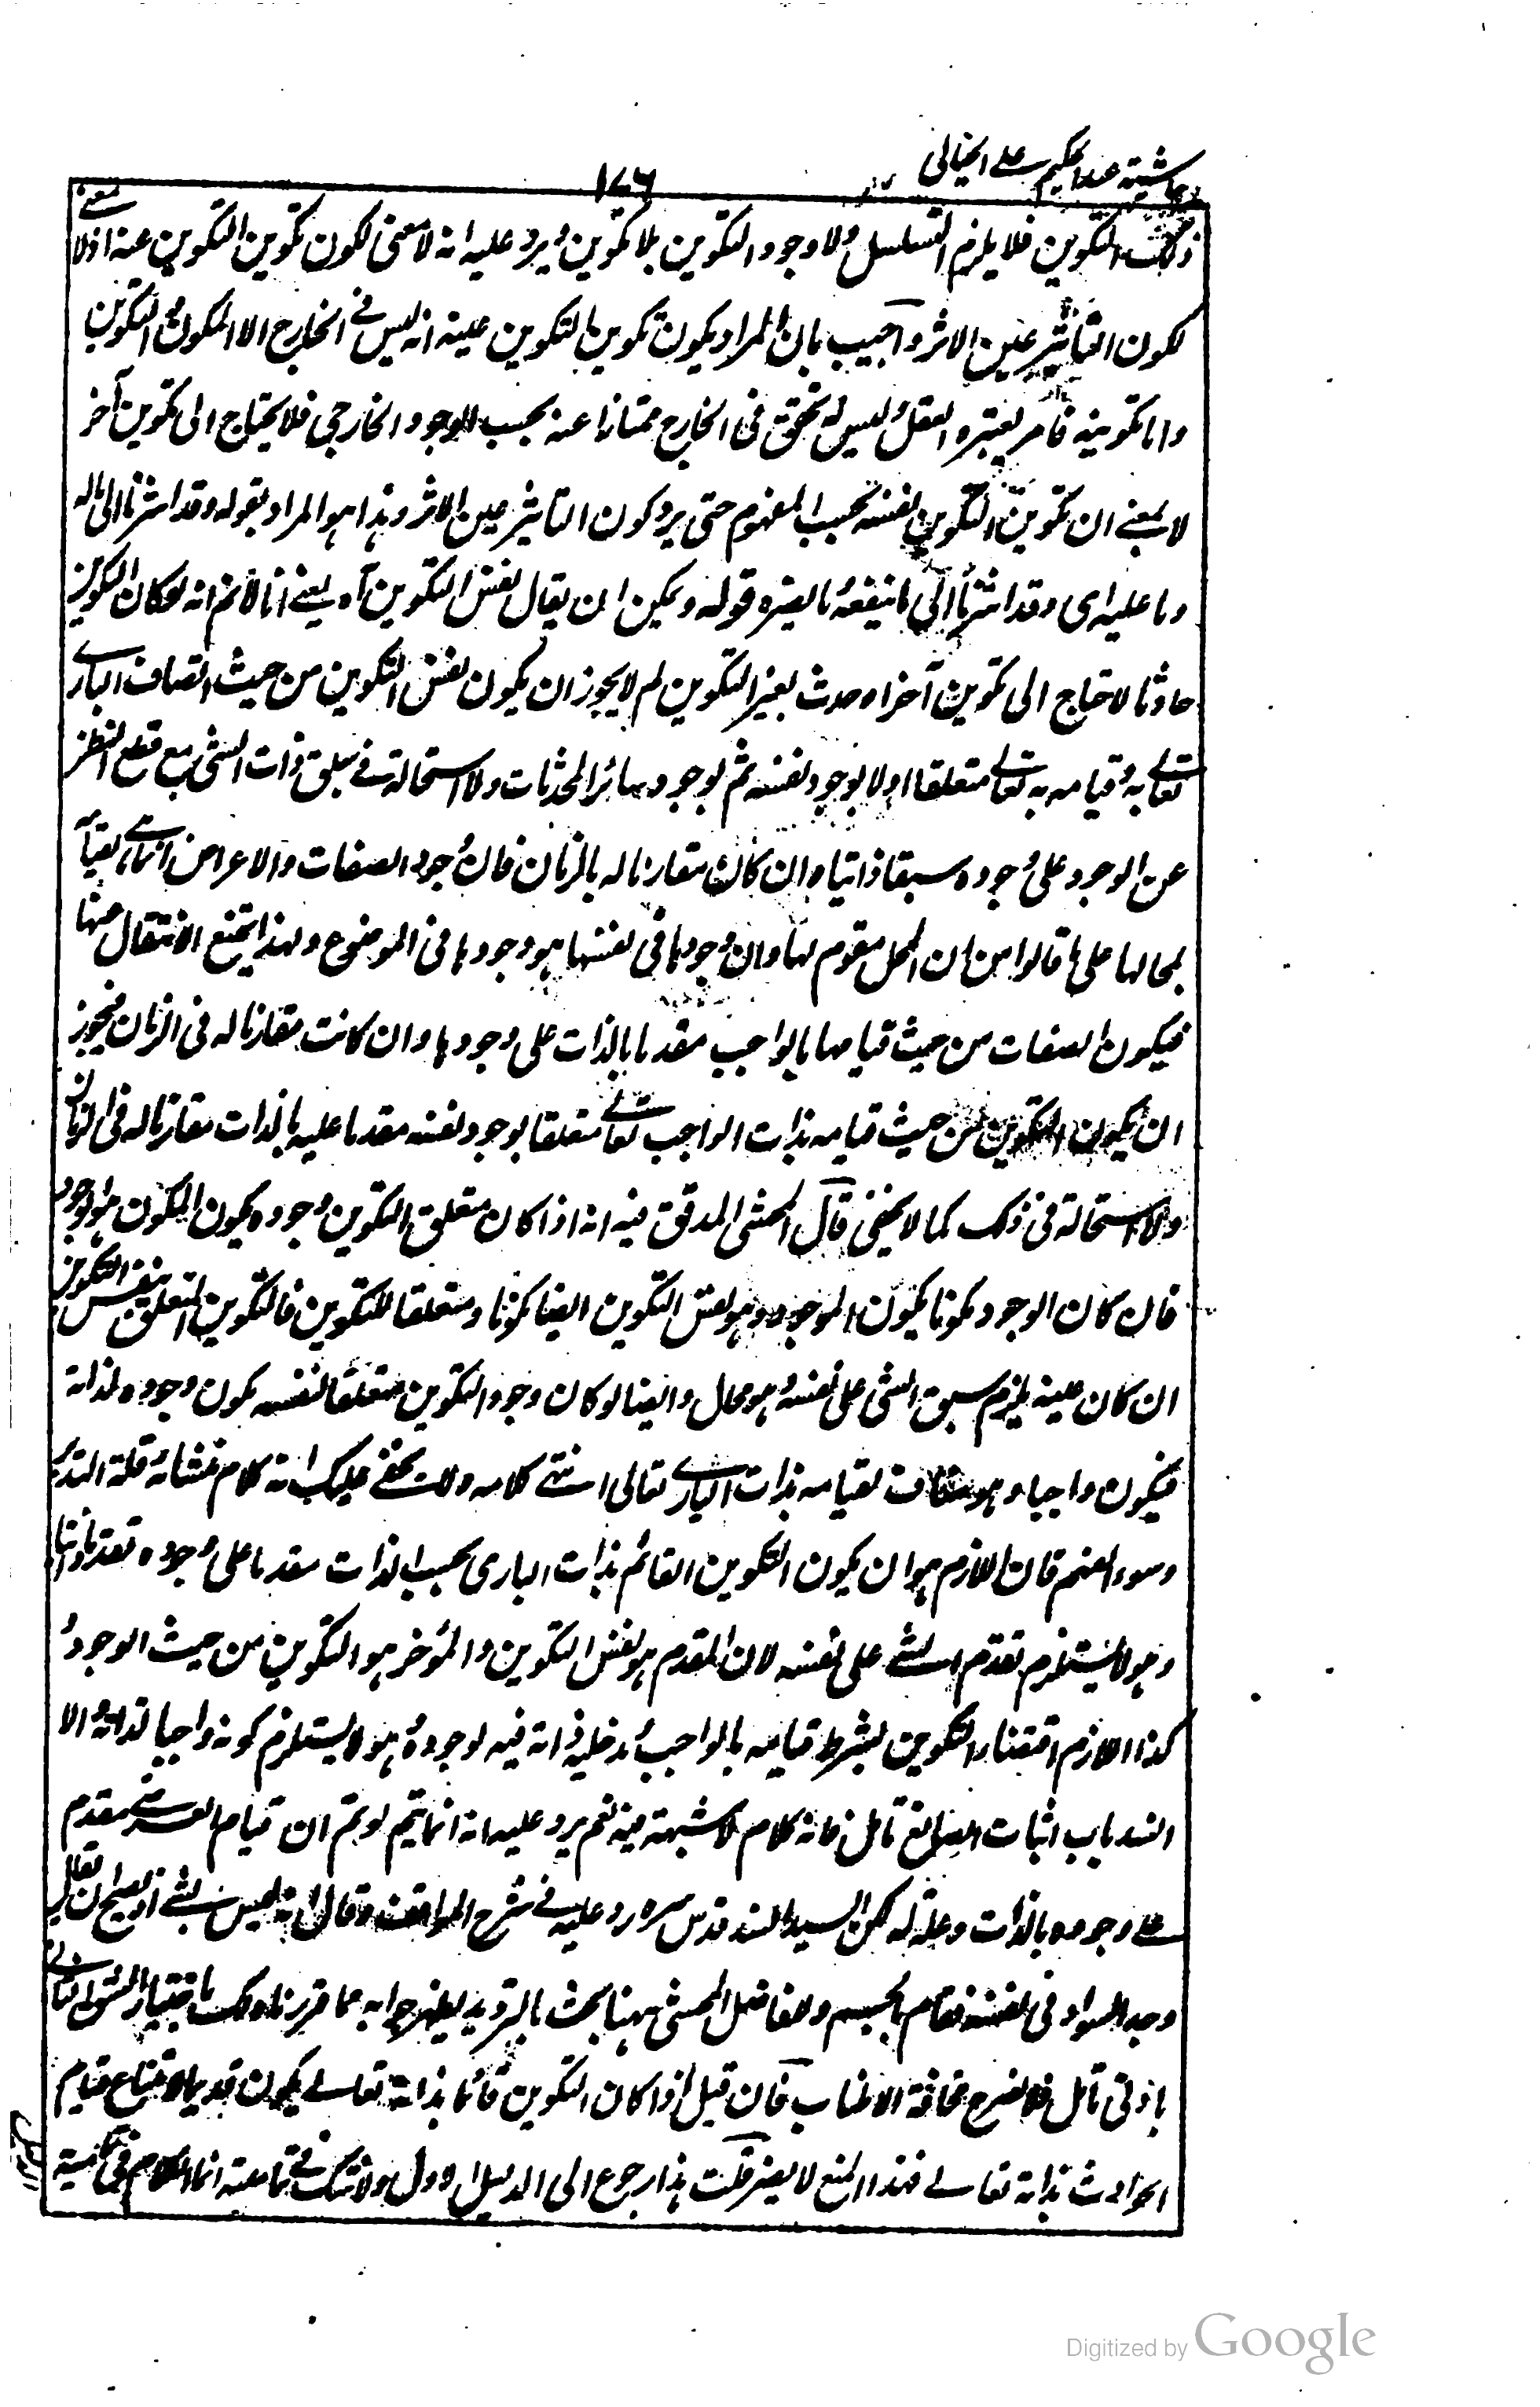 حاشية عبد الحكيم على الخيالى
١٧٦
ذلك التكوين فلا يلزم التسلسل ولا وجود التكوين بلا تكوين ويرد عليه انه لا معنى لكون تكوين التكوين عينه اذ لا معنے
لكون التأثير عين الاثر واجيب بان المراد بكون تكوين التكوين عينه انه ليس فے الخارج الا المكون والتكوين
واما تكوينه فامر يعتبره العقل ليس له تحقق فى الخارج ممتازا عنه بحسب الوجود الخارجى فلا يحتاج الى تكوين آخر
لا بمعنے ان تكوين التكوين نفسه بحسب المفهوم حتى يرد كون التأثير عين الاثر وهذا هو المراد بقوله وقد اشرنا الى ما له
وما عليه اى وقد اشرنا الى ما ينفعه وما يضره قوله ويمكن ان يقال نفس التكوين آه يعنے انا لا نم انه لو كان التكوين
حادثا لاحتاج الى تكوين آخر او حدث بغير التكوين لم لا يجوز ان يكون نفس التكوين من حيث اتصاف البارے
تعالے به وقيامه به تعالے متعلقا اولا بوجود نفسه ثم بوجود سائر المحدثات ولا استحالة فے سبق ذات الشئ مع قطع النظر
عن الوجود على وجوده سبقا ذاتيا وان كان مقارنا له بالزمان فان وجود الصفات والاعراض انما هے بقيامه
بمحالها على ما قالوا من ان المحل مقوم لها وان وجودها فى نفسها هو وجودها فى الموضوع ولهذا يمتنع الانتقال عنها
فيكون الصفات من حيث قيامها بالواجب مقدما بالذات على وجودها وان كانت مقارنا له فى الزمان فيجوز
ان يكون التكوين من حيث قيامه بذات الواجب تعالے متعلقا بوجود نفسه مقدما عليه بالذات مقارنا له فى الزمان
ولا استحالة فى ذلك كما لا يخفى قال المحشى المدقق فيه انه اذا كان متعلق التكوين وجوده يكون المكون هو الوجود
فان كان الوجود مكونا يكون الموجود وهو نفس التكوين ايضا مكونا ومتعلقا للتكوين فالتكوين المتعلق بنفس التكوين
ان كان عينه يلزم سبق الشئ على نفسه وهو محال وايضا لو كان وجود التكوين متعلقا لنفسه يكون وجوده لذاته
فيكون واجبا وهو مناف لقيامه بذات البارے تعالى انتہے كلامه ولا يخفے عليك انه كلام منشائه قلة التدبر
وسوء الفهم فان اللازم هو ان يكون التكوين القائم بذات البارى بحسب الذات مقدما على وجوده تقدما ذاتيا
وهو لا يستلزم تقدم الشئے على نفسه لان المقدم هو نفس التكوين والمؤخر هو التكوين من حيث الوجود و
كذا اللازم اقتضاء التكوين بشرط قيامه بالواجب ومدخلية ذاته فيه لوجوده وهو لا يستلزم كونه واجبا لذاته والا
انسد باب اثبات الصانع تامل فانه كلام لا شبهة فيه نعم يرد عليه انه انما يتم لو تم ان قيام العرض مقدم
علے وجوده بالذات وعلة له لكن السيد السند قدس سره رد عليه فے شرح المواقف وقال انه ليس بشئے اذ يصح ان يقال
وجد السواد فى نفسه فقام بالجسم وللفاضل المحشى ههنا بحث بالترديد يظهر جوابه مما قررنا لك باختيار الشق الثانے
بادنى تامل فلا نصرح مخافة الاطناب فان قيل اذا كان التكوين قائما بذاته تعالے يكون قديما لامتناع قيام
الحوادث بذاته تعالے فهذا المنع لا يضر قلت هذا رجوع الى الدليل الاول ولا شك فے تماميته انما الكلام فى تمامية
الدليل